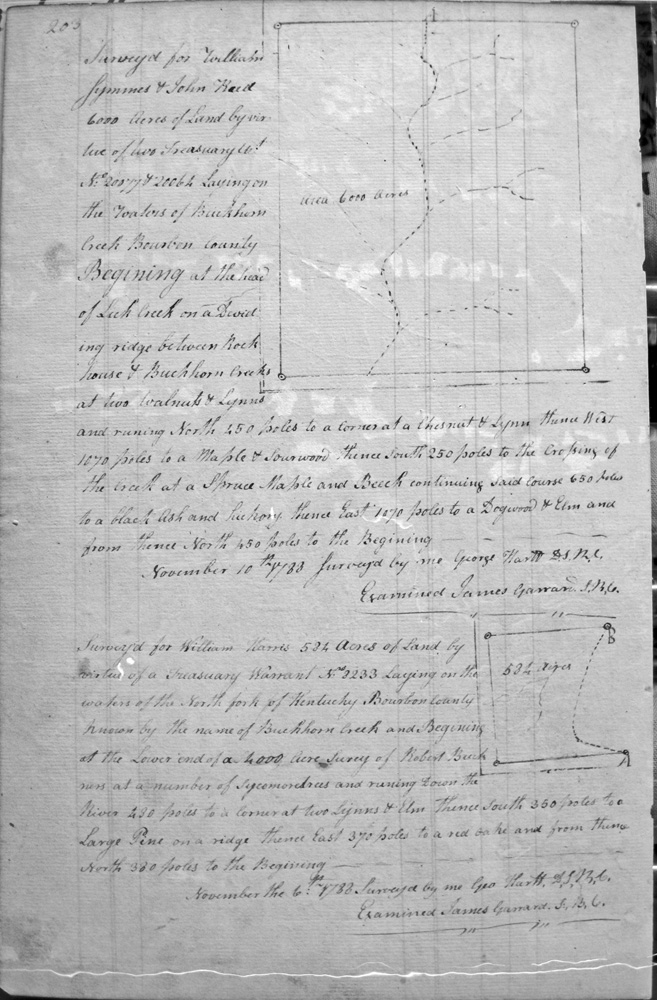 203
Surveyd for William
Symmes & John Reed
6000 Acres of Land by vir
tue of two Treasuary Wt
No 20877 & 20064 Laying on
the Waters of Buckhorn
Creek Bourbon County
Begining at the head
of Lick Creek on a Devid
ing ridge between Rock
house & Buckhorn Creeks
at two walnuts & Lynns
and runing North 450 poles to a corner at a Chesnut & Lynn thence West
1070 poles to a Maple & Sourwood thence South 250 poles to the Crossing of
the Creek at a Spruce Maple and Beech continuing said Course 650 poles
to a black Ash and hickory thence East 1070 poles to a Dogwood & Elm and
from thence North 450 poles to the Begining
November 10th 1783 Surveyd by me George Hartt D.S.B.C.
Examined James Garrard. S.B.C.
area 6000 acres
Surveyd for William Harris 584 Acres of Land by
virtue of a Treasuary Warrant No 2233 Laying on the
waters of the North fork of Kentucky Bourbon County
known by the name of Buckhorn Creek and Begining
at the Lower end of a 4000 Acre Survey of Robert Buck
ners at a number of Sycomordrees and runing down the
River 420 poles to a Corner at two Lynns & Elm thence South 350 poles to a
Large Pine on a ridge thence East 370 poles to a red oake and from thence
North 320 poles to the Begining
November the 6th 1783 Surveyd by me Geo Hartt. D.S.B.C.
Examined James Garrard. S.B.C.
584 acres
B
A